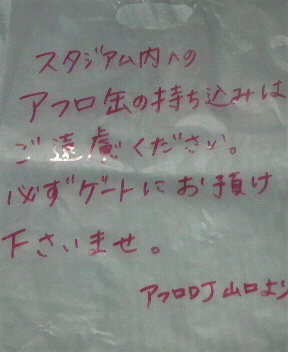 スタジアム内への
アフロ缶の持ち込みは
ご遠慮ください。
必ずゲートにお預け
下さいませ。
アフロDJ山口より